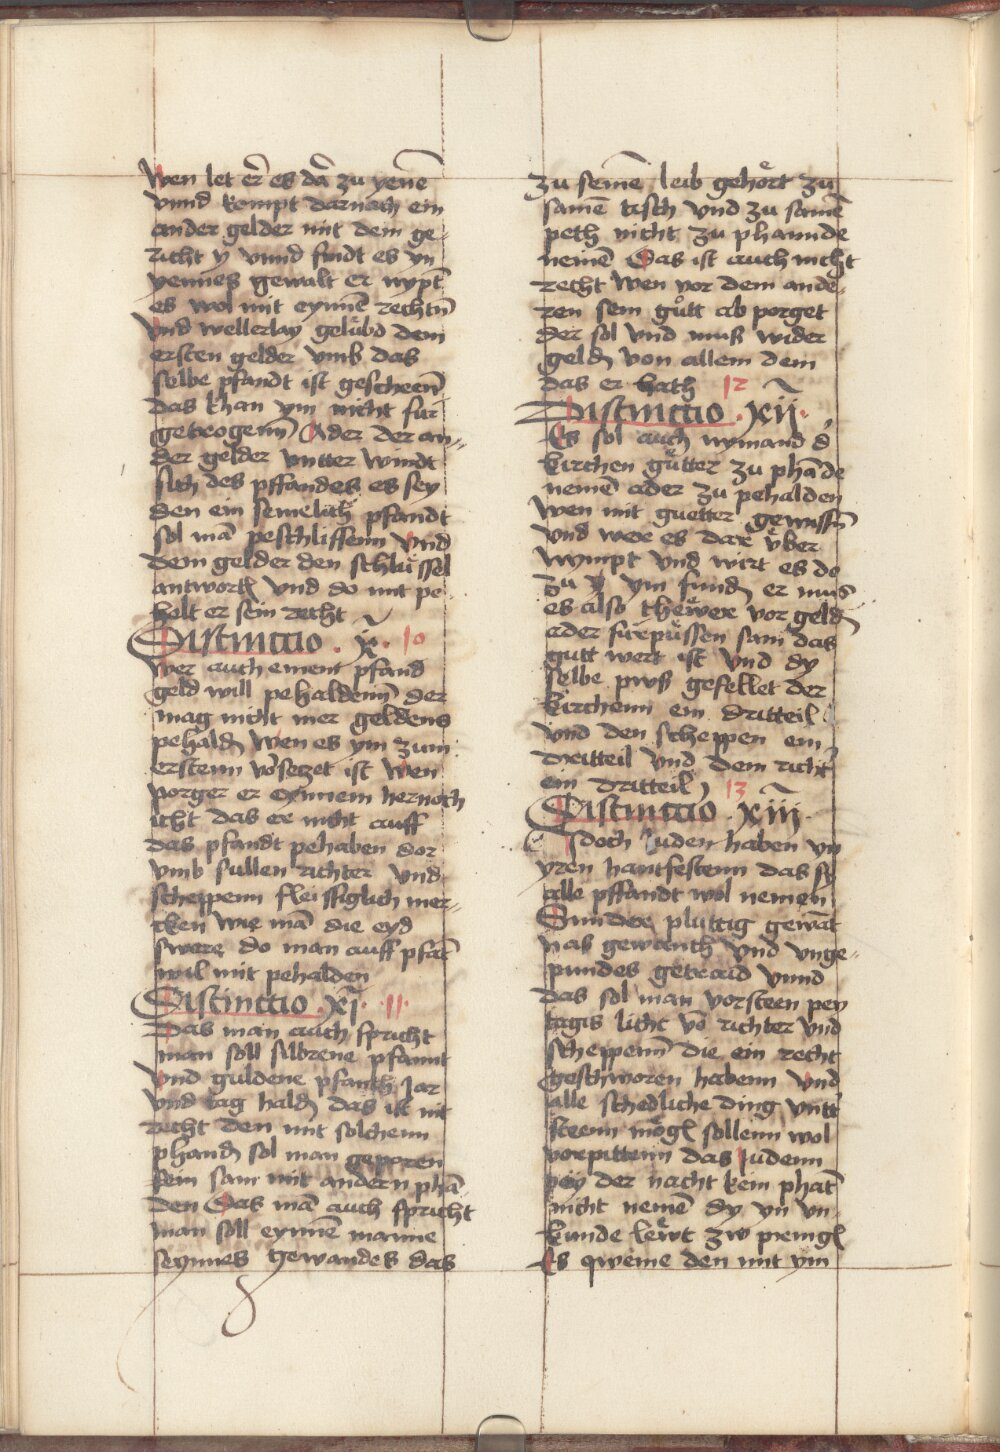 Wen let er̄ es da zu yene̅
vnnd kompt darnach ein
ander gelder mit dem ge-
richt y vnnd findt es yn
yennes gewalt er nympt
es wol mit eynne̅ rechtn̄
Vnd wellerlay gelůbd dem
ersten gelder vmb das
selbe pfandt ist gescheen̄
das khan ym nicht fur
getrogenn̄ Ader der an-
der gelder vntter windt
sich des pffandes es sey
den ein semelich pfandt
sol ma̅ peschliessenn Vnd
dem gelder den schlüssel
antwort̄ vnd do mit pe
helt er sein recht
Distinctio . x̄ . 10
Wer auch einem pfand
geld will pehaldenn̄ der
mag nicht mer geldens
pehald̄ Wen es ym zum
erstenn vo̅setzet ist Wen
porget er eynnem hernoch
icht das er nicht auff
das pfandt pehaben dor
vmb sullen richter vnd
scheppenn fleissiglich mer-
cken wie ma̅ die eyd
swere do man auff pfa̅t
wil mit pehalden
Distinctio . xī . 11.
Das man auch spricht
man soll silbrene pfannt
Vnd guldene pfanth Jar
vnd tag hald̄ das ist nit
recht den mit solchenn
phand̄ sol man geporen
sein sam mit andern pha̅-
den Das ma̅ auch spricht
man soll eynne̅ manne
seynnes gewandes das
zu seine̅ leib gehört zu
saine̅ tisch vnd zu saine̅
peth nicht zu phannde
neme̅ Das ist auch nicht
recht wen vor dem ande-
ren sein gůtt ab porget
der sol vnd mus wider
geld̄ von allem dem
das er hath 12
Distinctio . xiī .
Es sol auch nymand d'
kirchen gůtter zu pha̅de
neme̅ ader zu pehalden
Wen mit guetter gewissn̄
vnd wer es dar über
nympt vnd wirt es do
zu ym fund̄ er mus
es also thewer vor geld̄
ader fürpüssen sam das
gutt wert ist Vnd dy
selbe pws gefellet der
kirchenn ein dritteil
vnd den scheppen ein
dritteil vnd dem richt'
ein dritteil 13
Distinctio . xiiī .
Jdoch Juden haben yn
yren hantfestenn das sy
alle pffandt wol nemen
Sunder pluttig gewa̅t
nas gewanth Vnd vnge-
pundes getraid vnnd
das sol man vorsteen pey
tagis licht vo̅ richter vnd
scheppenn̄ die ein recht
geschworen habenn Vnd
alle schedliche ding vntt'
steenn mögn̄ sollenn wol
vorpittenn das Judenn
pey der nacht kein phat̄
nicht neme̅ dy yn vn-
kunde lewt zw prengn̄
Es qweme den mit ym